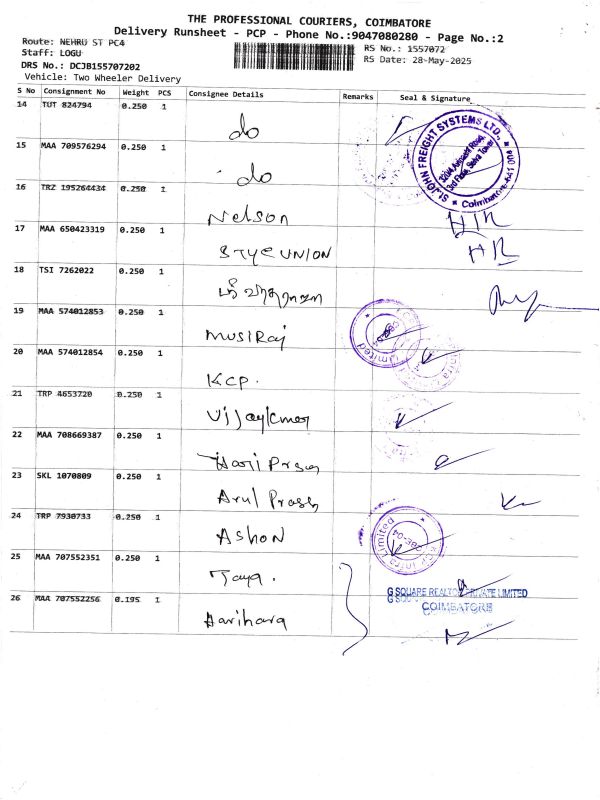 THE PROFESSIONAL COURIERS, COIMBATORE
Delivery Runsheet - PCP - Phone No.:9047080280 - Page No.:2
Route: NEHRU ST PC4
RS No.: 1557072
Staff: LOGU
RS Date: 28-May-2025
DRS No.: DCJB155707202
Vehicle: Two Wheeler Delivery
S No Consignment No Weight PCS Consignee Details Remarks Seal & Signature
14 TUT 824794 0.250 1 do
ST.JOHN FREIGHT SYSTEMS LTD.,
3rd Floor,
Coimbatore-641 004
15 MAA 709576294 0.250 1 do
16 TRZ 195264434 0.250 1 Nelson
17 MAA 650423319 0.250 1 STYLEUNION HR
18 TSI 7262022 0.250 1
19 MAA 574012853 0.250 1 MUSIRaj
Limited
20 MAA 574012854 0.250 1 KCP.
21 TRP 4653720 0.250 1 Vijaykmar
22 MAA 708669387 0.250 1 Hari Prsa
23 SKL 1070809 0.250 1 Arul Prassh
24 TRP 7930733 0.250 1 AShoN
KCP Infra Limited
CBE-04
25 MAA 707552351 0.250 1 Jaya.
G SQUARE REALTORS PRIVATE LIMITED
COIMBATORE
26 MAA 707552256 0.195 1 Harihara